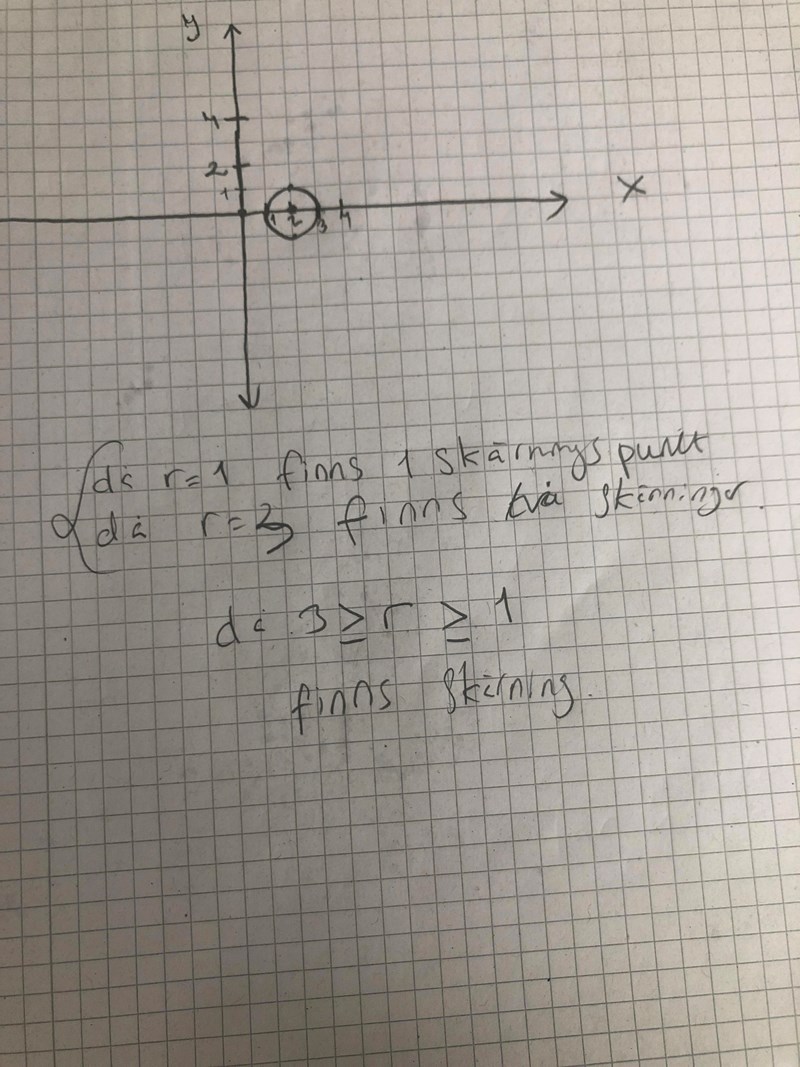 y
4
2
1
X
1 2 3 4
då r=1 finns 1 skärnings punkt
då r= finns två skärningar.
då 3 ≥ r ≥ 1
finns skärning.